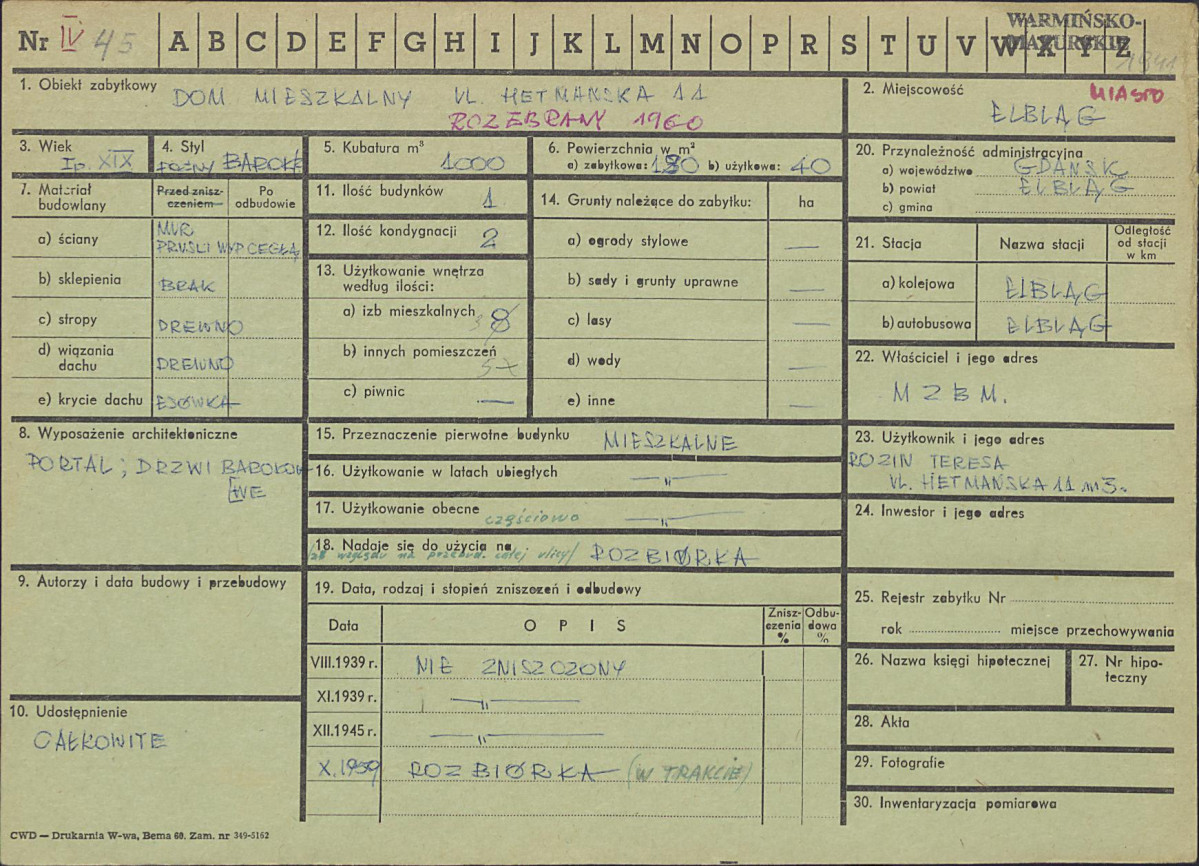 Nr IV 45 A B C D E F G H I J K L M N O P R S T U V W X Y Z
WARMIŃSKO-
MAZURSKIE
1. Obiekt zabytkowy DOM MIESZKALNY UL. HETMAŃSKA 11
ROZEBRANY 1960
2. Miejscowość MIASTO
ELBLĄG
3. Wiek
Ip. XIX
4. Styl
PÓŹNY BAROKK
5. Kubatura m³
1000
6. Powierzchnia w m²
a) zabytkowa: 180 b) użytkowa: 40
20. Przynależność administracyjna
a) województwo GDAŃSK
b) powiat ELBLĄG
c) gmina
7. Materiał budowlany
Przed zniszczeniem
Po odbudowie
a) ściany MUR.
PRUSKI WYP CEGŁĄ
b) sklepienia BRAK
c) stropy DREWNO
d) wiązania dachu DREWNO
e) krycie dachu ESÓWKA
11. Ilość budynków 1
12. Ilość kondygnacji 2
13. Użytkowanie wnętrza
według ilości:
a) izb mieszkalnych 8
b) innych pomieszczeń
c) piwnic —
14. Grunty należące do zabytku: ha
a) ogrody stylowe —
b) sady i grunty uprawne —
c) lasy —
d) wody —
e) inne —
21. Stacja Nazwa stacji Odległość od stacji w km
a) kolejowa ELBLĄG
b) autobusowa ELBLĄG
22. Właściciel i jego adres
M Z B M.
8. Wyposażenie architektoniczne
PORTAL; DRZWI BAROKO-
WE
15. Przeznaczenie pierwotne budynku MIESZKALNE
16. Użytkowanie w latach ubiegłych —"—
17. Użytkowanie obecne częściowo —"—
18. Nadaje się do użycia na ROZBIÓRKA
/ze względu na przebud. całej ulicy/
23. Użytkownik i jego adres
ROZIN TERESA
UL. HETMAŃSKA 11 m 3.
24. Inwestor i jego adres
9. Autorzy i data budowy i przebudowy
19. Data, rodzaj i stopień zniszczeń i odbudowy
Data OPIS Zniszczenia % Odbudowa %
VIII.1939 r. NIE ZNISZCZONY
XI.1939 r. —"—
XII.1945 r. —"—
X.1959 ROZBIÓRKA (W TRAKCIE)
25. Rejestr zabytku Nr
rok miejsce przechowywania
26. Nazwa księgi hipotecznej
27. Nr hipoteczny
10. Udostępnienie
CAŁKOWITE
28. Akta
29. Fotografie
30. Inwentaryzacja pomiarowa
CWD — Drukarnia W-wa, Bema 60. Zam. nr 349-5162